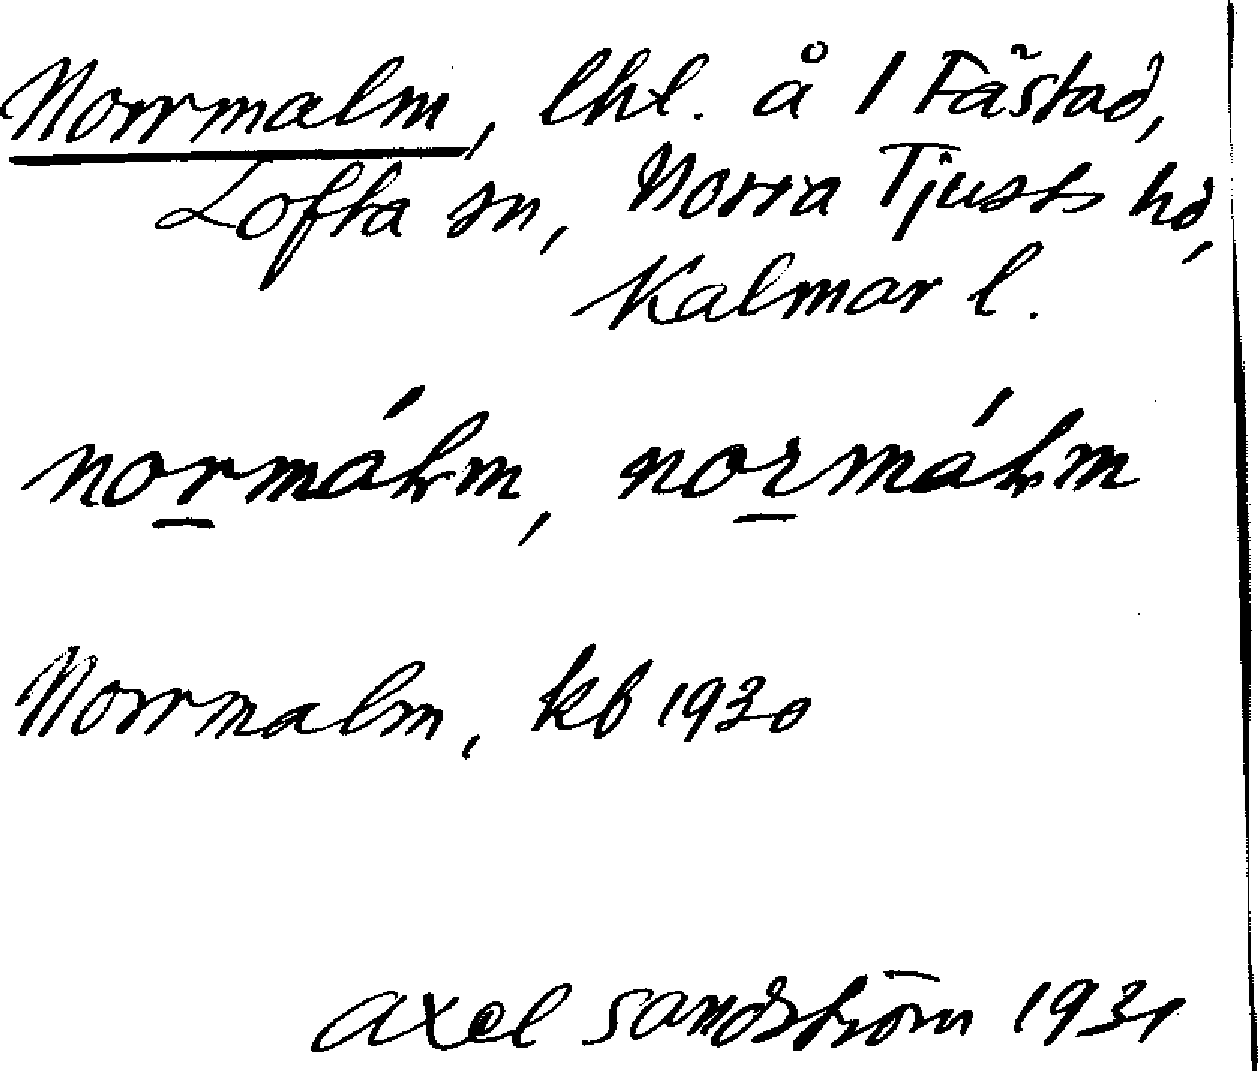 Norrmalm, lhl. å 1 Fästad,
Lofta sn, Norra Tjusts hd,
Kalmar l.
normálm, normálm
Norrmalm, kb 1930
Axel Sandström 1931